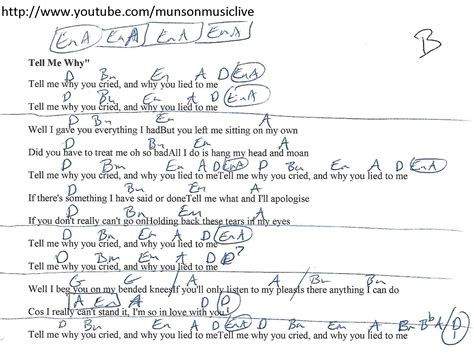 http://www.youtube.com/munsonmusiclive
EmA EmA EmA EmA
B
Tell Me Why"
D Bm Em A D EmA
Tell me why you cried, and why you lied to me
D Bm Em A D EmA
Tell me why you cried, and why you lied to me
D Bm Em A
Well I gave you everything I hadBut you left me sitting on my own
D Bm Em A
Did you have to treat me oh so badAll I do is hang my head and moan
D Bm Em A D EmA D Bm Em A D EmA
Tell me why you cried, and why you lied to meTell me why you cried, and why you lied to me
D Bm Em A
If there's something I have said or doneTell me what and I'll apologise
D Bm Em A
If you don't really can't go onHolding back these tears in my eyes
D Bm Em A D EmA
Tell me why you cried, and why you lied to me
D Bm Em A D ?
Tell me why you cried, and why you lied to me
G G A Bm Bm
Well I beg you on my bended kneesIf you'll only listen to my pleasIs there anything I can do
A Em A D D
Cos I really can't stand it, I'm so in love with you
D Bm Em A D EmA D Bm Em A Bm Bb A D
Tell me why you cried, and why you lied to meTell me why you cried, and why you lied to me